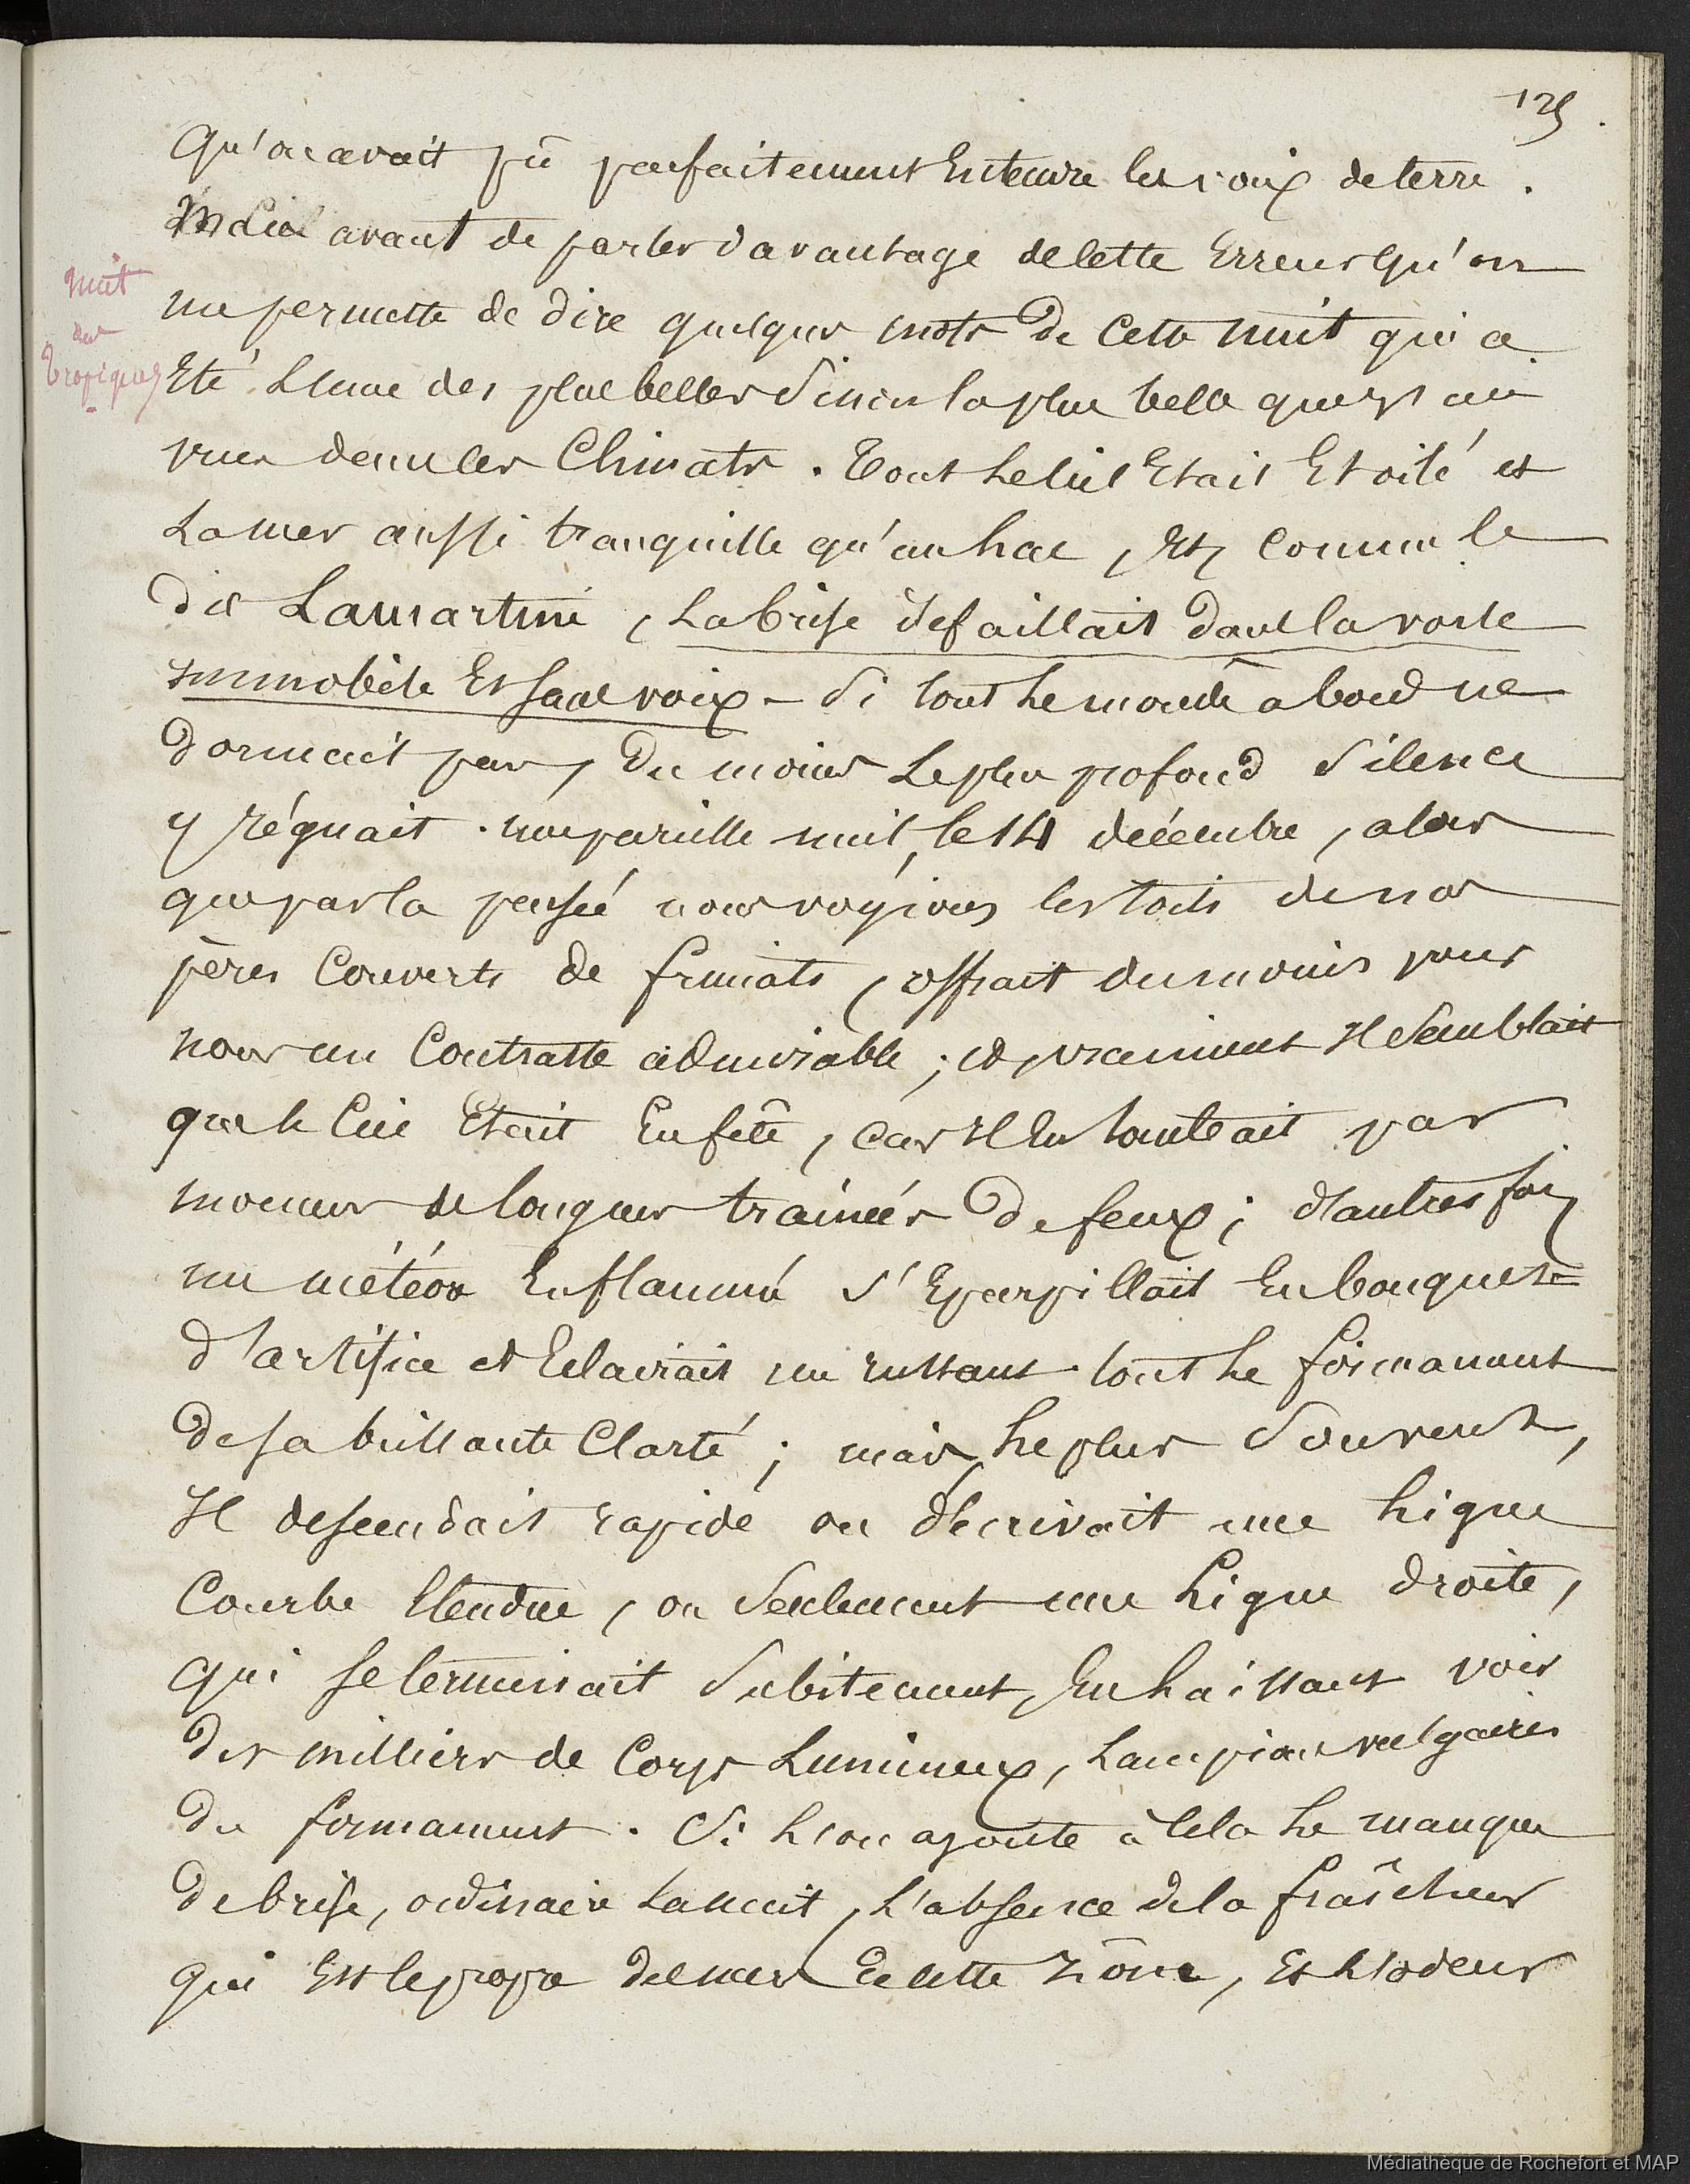 125.
Qu'on avait pû parfaitement Entendre les voix de terre.
Mais avant de parler davantage de Cette Erreur qu'on
me permette de dire quelques mots de Cette nuit qui a
nuit
des
tropiques
Eté L'une des plus belles Sinon la plus belle que j'ai
vue dans les Climats. Tout le Ciel Etait Etoilé et
La mer aussi tranquille qu'un Lac, Et, comme le
dit Lamartine, La brise défaillait dans la voile
immobile Et sans voix - Si tout le monde à bord ne
dormait pas, du moins Le plus profond Silence
y régnait. une pareille nuit, le 14 décembre, alors
que par la pensée nous voyions les toits de nos
pères Couverts de frimats, offrait du moins pour
nous un Contraste admirable; et vraiment Il Semblait
que le Ciel Etait En fête, car Il En tombait par
moment de longues trainées de feux; d'autres fois
un météore Enflammé S'Eparpillait En bouquet
d'artifice et Eclairait un instant tout Le firmament
de sa brillante Clarté; mais Le plus Souvent,
Il descendait rapide ou décrivait une Ligne
Courbe Etendue, ou Seulement une Ligne droite,
qui se terminait Subitement, En Laissant voir
des milliers de Corps Lumineux, Lampions vulgaires
du firmament. Si L'on ajoute à Cela Le manque
de brise, ordinaire La nuit, L'absence de la fraîcheur
qui Est le propre des mers de Cette Zône, Et L'odeur
Médiathèque de Rochefort et MAP